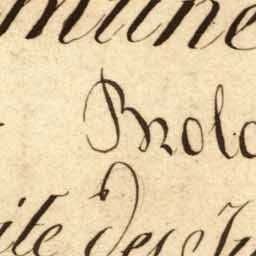 mune
Brolo
ite des Ju